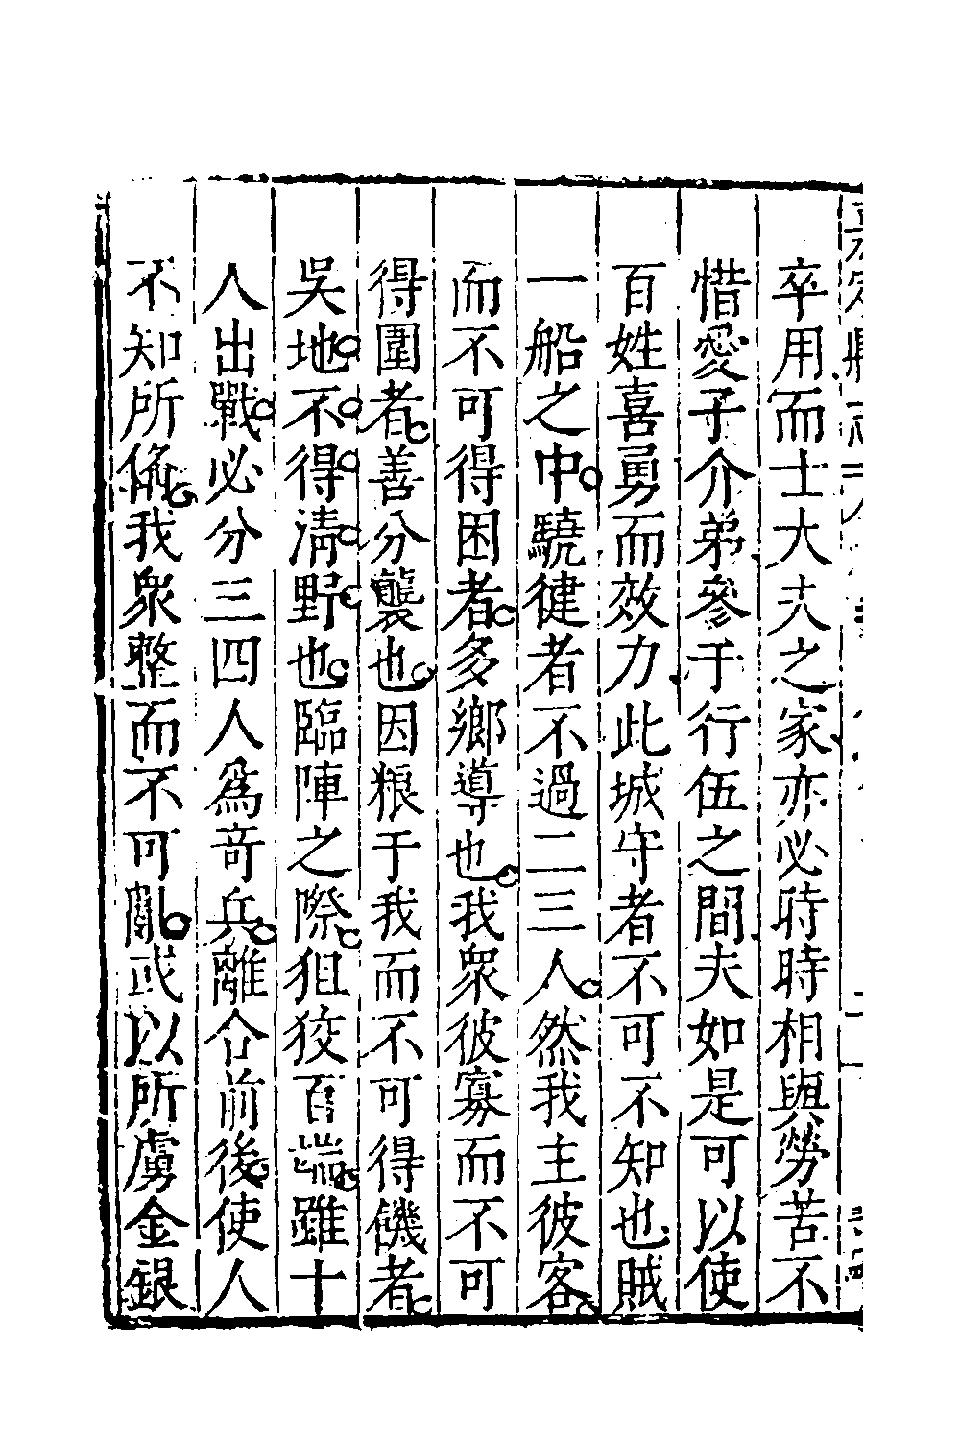 卒用而士大夫之家亦必時時相與勞苦不
惜愛子介弟參于行伍之間夫如是可以使
百姓喜勇而效力此城守者不可不知也賊
一船之中驍健者不過二三人然我主彼客
而不可得困者多鄉導也我眾彼寡而不可
得圍者善分襲也因粮于我而不可得饑者
吳地不得清野也臨陣之際狙狡百端雖十
人出戰必分三四人爲竒兵離合前後使人
不知所偹我衆整而不可亂或以所虜金銀